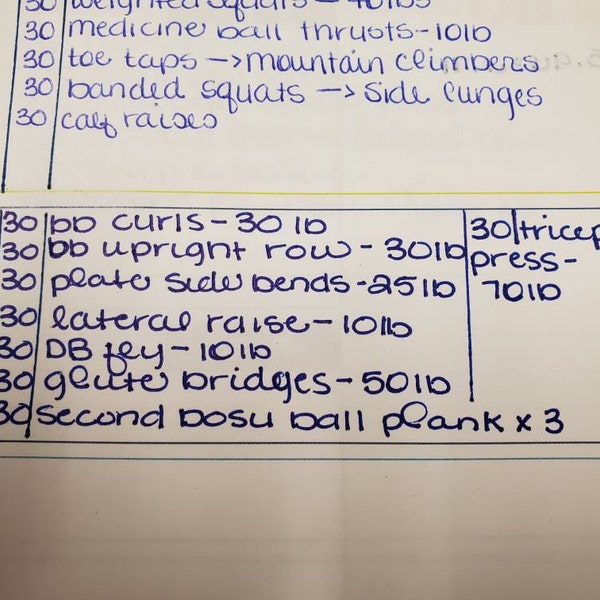 30 weighted squats - 40lbs
30 medicine ball thrusts-10lb
30 toe taps → mountain climbers
30 banded squats → side lunges
30 calf raises
30 bb curls-30 lb
30 bb upright row - 30lb
30 plate side bends-25lb
30 lateral raise-10lb
30 DB fly-10lb
30 glute bridges-50lb
30 second bosu ball plank x 3
30 tricep
press-
70lb